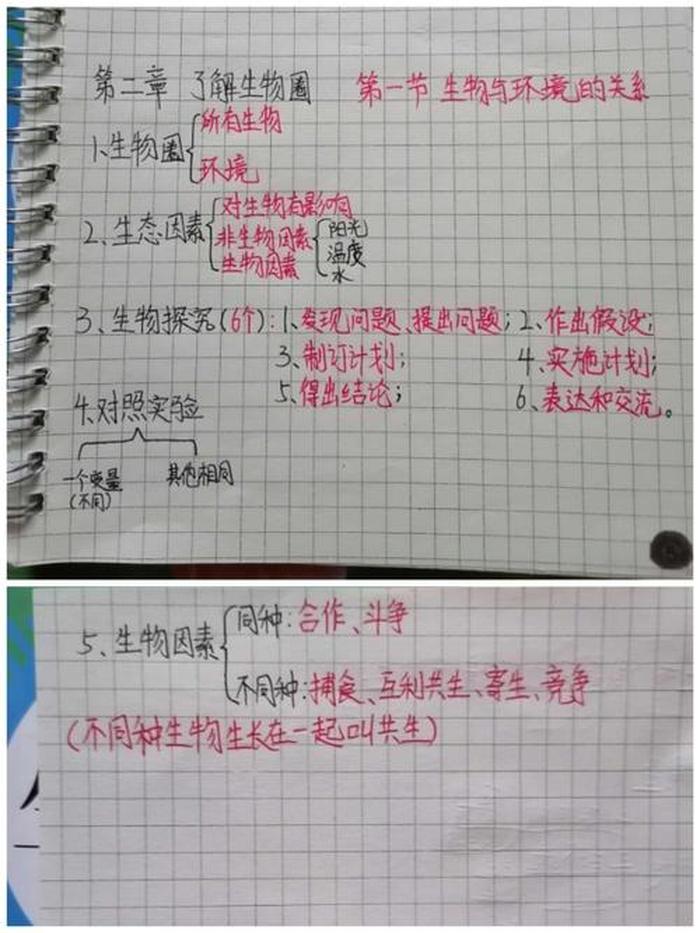 第二章 了解生物圈 第一节 生物与环境的关系
1、生物圈
所有生物
环境
2、生态因素
对生物有影响
非生物因素
阳光
温度
水
生物因素
3、生物探究(6个):1、发现问题、提出问题;2、作出假设;
3、制订计划; 4、实施计划;
5、得出结论; 6、表达和交流。
4、对照实验
一个变量 其他相同
(不同)
5、生物因素
同种:合作、斗争
不同种:捕食、互利共生、寄生、竞争
(不同种生物生长在一起叫共生)